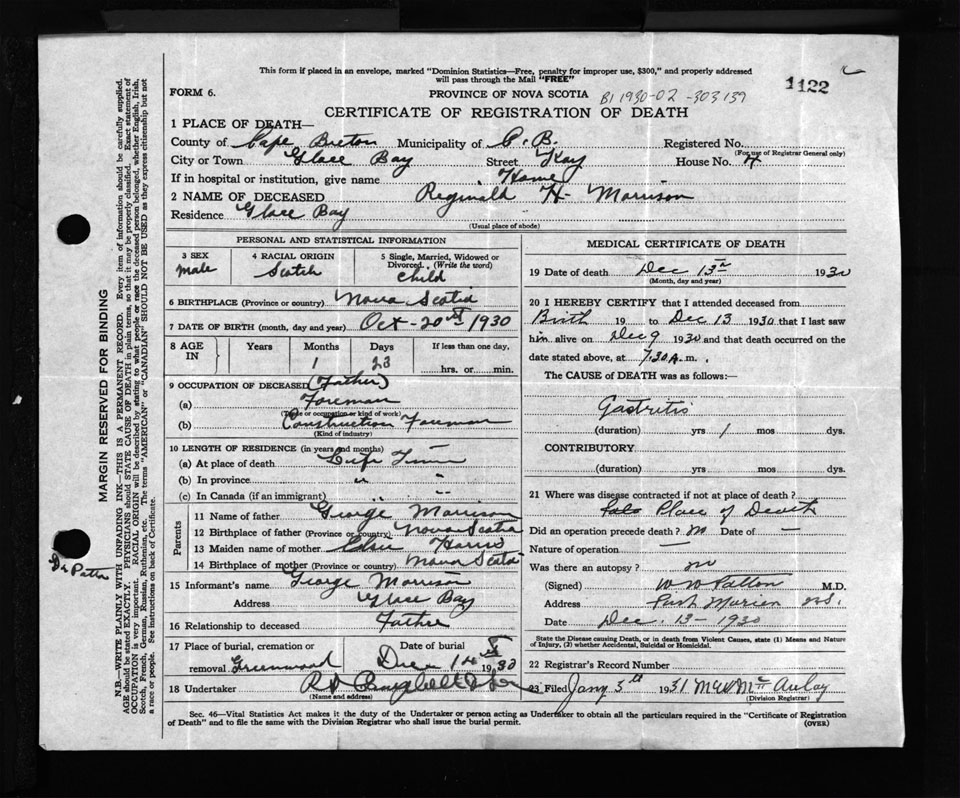 This form if placed in an envelope, marked "Dominion Statistics—Free, penalty for improper use, $300," and properly addressed
will pass through the Mail "FREE"
1122
FORM 6.
PROVINCE OF NOVA SCOTIA
B1 1930-02 -303139
CERTIFICATE OF REGISTRATION OF DEATH
1 PLACE OF DEATH—
County of Cape Breton Municipality of C. B. Registered No.
(For use of Registrar General only)
City or Town Glace Bay Street Kay House No. 4
If in hospital or institution, give name Home
2 NAME OF DECEASED Reginald H. Morrison
Residence Glace Bay
(Usual place of abode)
PERSONAL AND STATISTICAL INFORMATION
3 SEX
male
4 RACIAL ORIGIN
Scotch
5 Single, Married, Widowed or
Divorced. (Write the word)
Child
6 BIRTHPLACE (Province or country) Nova Scotia
7 DATE OF BIRTH (month, day and year) Oct-20st 1930
8 AGE
IN
Years
Months
1
Days
23
If less than one day,
hrs. or min.
9 OCCUPATION OF DECEASED (Father)
(a) Foreman
(Trade or occupation or kind of work)
(b) Construction Foreman
(Kind of industry)
10 LENGTH OF RESIDENCE (in years and months)
(a) At place of death Life Time
(b) In province " "
(c) In Canada (if an immigrant) " "
Parents
11 Name of father George Morrison
12 Birthplace of father (Province or country) Nova Scotia
13 Maiden name of mother Elsie Harris
14 Birthplace of mother (Province or country) Nova Scotia
15 Informant's name George Morrison
Address Glace Bay
16 Relationship to deceased Father
17 Place of burial, cremation or
removal Greenwood
Date of burial
Dec 14 1930
18 Undertaker
(Name and address)
MEDICAL CERTIFICATE OF DEATH
19 Date of death Dec 13th 1930
(Month, day and year)
20 I HEREBY CERTIFY that I attended deceased from
Birth 19 to Dec 13 1930 that I last saw
him alive on Dec 9 1930 and that death occurred on the
date stated above, at 7.30 A.m.
The CAUSE of DEATH was as follows:—
Gastritis
(duration) yrs 1 mos dys.
CONTRIBUTORY
(duration) yrs. mos. dys.
21 Where was disease contracted if not at place of death?
Place of Death
Did an operation precede death? no Date of —
Nature of operation —
Was there an autopsy? no
(Signed) W W Patton M.D.
Address Port Morien N.S.
Date Dec. 13-1930
State the Disease causing Death, or in death from Violent Causes, state (1) Means and Nature
of Injury, (2) whether Accidental, Suicidal or Homicidal.
22 Registrar's Record Number
23 Filed Jany 3rd 1931
(Division Registrar)
Sec. 46—Vital Statistics Act makes it the duty of the Undertaker or person acting as Undertaker to obtain all the particulars required in the "Certificate of Registration
of Death" and to file the same with the Division Registrar who shall issue the burial permit.
(OVER)
MARGIN RESERVED FOR BINDING
N.B.—WRITE PLAINLY WITH UNFADING INK—THIS IS A PERMANENT RECORD. Every item of information should be carefully supplied.
AGE should be stated EXACTLY. PHYSICIANS should STATE CAUSE OF DEATH in plain terms, so that it may be properly classified. Exact statement of
OCCUPATION is very important. RACIAL ORIGIN will be described by stating to what people or race the deceased person belonged, whether English, Irish,
Scotch, French, German, Russian, Ruthenian, etc. The terms "AMERICAN" or "CANADIAN" SHOULD NOT BE USED as they express citizenship but not
a race or people. See instructions on back of Certificate.
Dr Patton